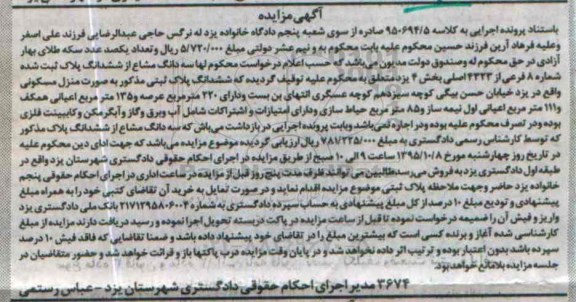 آگهی مزایده
باستناد پرونده اجرایی به کلاسه ۹۵۰۶۹۴/۵ صادره از سوی شعبه پنجم دادگاه خانواده یزد له نرگس حاجی عبدالرضایی فرزند علی اصغر
وعلیه فرهاد آرین فرزند حسین محکوم علیه بابت محکوم به و نیم عشر دولتی مبلغ ۵/۷۲۰/۰۰۰ ریال و تعداد یکصد عدد سکه طلای بهار
آزادی در حق محکوم له وصندوق دولت مدیون می باشد که حسب اعلام درخواست محکوم لها سه دانگ مشاع از ششدانگ پلاک ثبت شده
شماره ۸ فرعی از ۴۳۲۳ اصلی بخش ۴ یزد متعلق به محکوم علیه توقیف گردیده که ششدانگ پلاک ثبتی مذکور به صورت منزل مسکونی
واقع در یزد خیابان حسن بیگی کوچه سیزدهم کوچه عسگری انتهای بن بست ودارای ۲۲۰ مترمربع عرصه و۱۳۵ متر مربع اعیانی همکف
و۱۱۱ متر مربع اعیانی اول نیمه ساز و۸۵ متر مربع حیاط سازی ودارای امتیازات و اشتراکات شامل آب وبرق وگاز وآبگرمکن و کابینت فلزی
بوده ودر تصرف محکوم علیه بوده ودر اجاره نمی باشد وبابت پرونده اجرایی در بازداشت می باش که سه دانگ مشاع از ششدانگ پلاک مذکور
که توسط کارشناس رسمی دادگستری به مبلغ ۷۸۷/۲۲۵/۰۰۰ ریال ارزیابی گردیده موضوع مزایده می باشد که جهت ادای دین محکوم علیه
در تاریخ روز چهارشنبه مورخ ۱۳۹۵/۱۰/۸ ساعت ۹ الی ۱۰ صبح از طریق مزایده در اجرای احکام حقوقی دادگستری شهرستان یزد واقع در
طبقه اول دادگستری یزد به فروش می رسد طالبین می توانند ظرف مدت پنج روز قبل از مزایده در ساعت اداری در اجرای احکام حقوقی پنجم
خانواده یزد حاضر وجهت ملاحظه پلاک ثبتی موضوع مزایده اقدام نماید و در صورت تمایل به خرید آن تقاضای کتبی خود را به همراه مبلغ
پیشنهادی و تودیع مبلغ ۱۰ درصد از کل مبلغ پیشنهادی به حساب سپرده دادگستری به شماره ۲۱۷۱۲۹۵۸۰۶۰۰۴ بانک ملی دادگستری یزد
واریز و فیش آن را ضمیمه درخواست نموده تا قبل از ساعت مزایده در پاکت در بسته تحویل اجرا نموده و رسید دریافت دارند مزایده از مبلغ
کارشناسی شده آغاز و برنده کسی است که بیشترین مبلغ را در تقاضای خود پیشنهاد داده باشد و ضمنا تقاضایی که فاقد فیش ۱۰ درصد
سپرده باشد بدون اعتبار بوده و ترتیب اثر داده نخواهد شد و در پایان وقت مزایده درب پاکتها باز و قرائت خواهد شد و حضور متقاضیان در
جلسه مزایده بلامانع خواهد بود.
۳۶۷۴ مدیر اجرای احکام حقوقی دادگستری شهرستان یزد - عباس رستمی